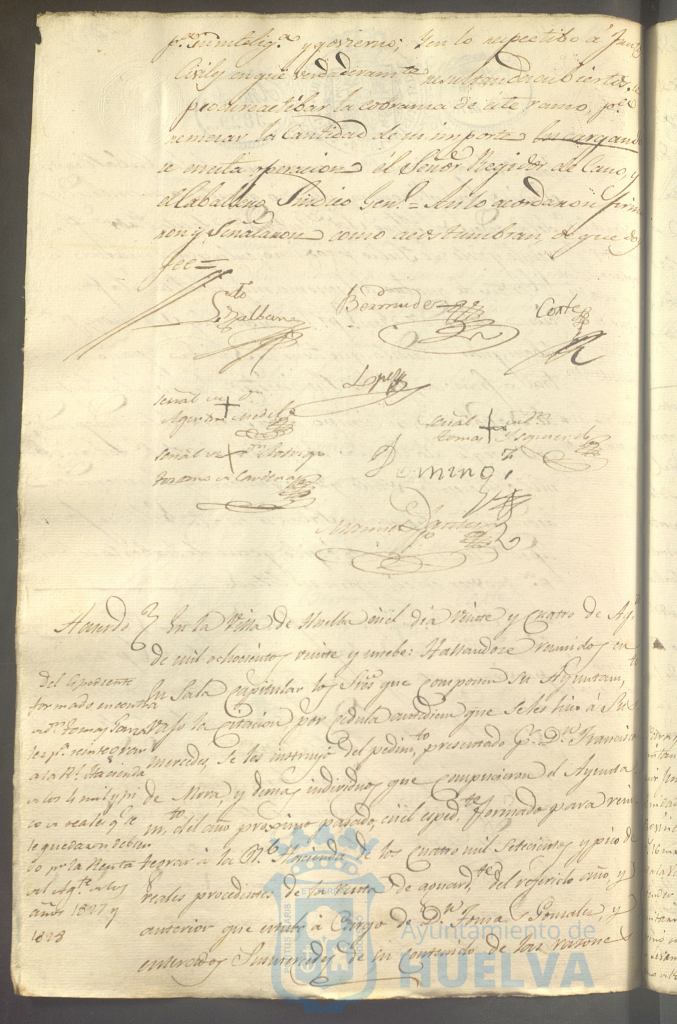 pa. su intelig.a y govierno; Yen lo respectibo á Juros
Civiles en que verdaderamte resultan descubiertos, se
procure actibar la cobranza de este ramo, pa.
remesar la Cantidad de su importe
a cuia operacion el Señor Regidor de Cano, y
el Caballero Sindico Genl.= Asi lo acordaron firma
ron y Señalaron como acostumbran, de que doy
fee=
Sto
Bermudez
Corte
Lopez
señal de dn.
Agustin
señal de dn
Tomas Izquierdo
señal de dn Rodrigo
de Cardenas
Domingz
Manuel
Acuerdo
En la Villa de Huelba en el dia veinte y Cuatro de Ag.to
de mil ochocientos veinte y nuebe: Hallandose reunidos en
su Sala Capitular los Sres que componen su Ayuntam.to
vaso la citacion por cedula antediem que se les hizo á Sus
mercedes, Se les instruyó del pedim.to presentado pr. Dn. Francisco
de Mora, y demas individuos que compusieron el Ayunta
m.to del año proximo pasado, en el espedte. formado para rein
tegrar á la Rl. Hacienda de los Cuatro mil Setecientos y pico de
reales procedentes de la Renta de aguardte. del referido año, y
anterior que estubo á Cargo de Dn. Tomas Gonzalez, y
enterados Sus mercedes de su contenido de las razones
del Espediente
formado en contra
de Dn. Tomas Gonza
lez pa. reintegrar
a la Rl. Hacienda
de los 4 mil y pi
co de reales qe. se
le quedan debien
do pr. la Renta
del Agte. de los
años 1827 y
1828
Ayuntamiento de
HUELVA